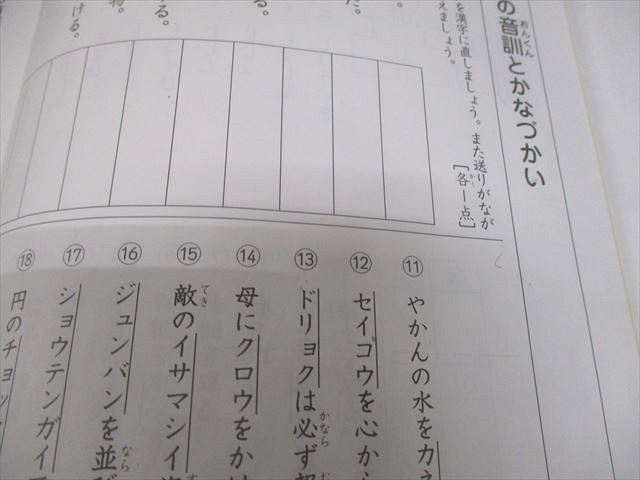 の音訓とかなづかい
を漢字に直しましょう。また送りがなが
えましょう。
[各一点]
る。
る。
ける。
⑪ やかんの水をカ
⑫ セイコウを心か
⑬ ドリョクは必ず
⑭ 母にクロウをか
⑮ 敵のイサマシイ
⑯ ジュンバンを並
⑰ ショウテンガイ
⑱ 円のチョッ